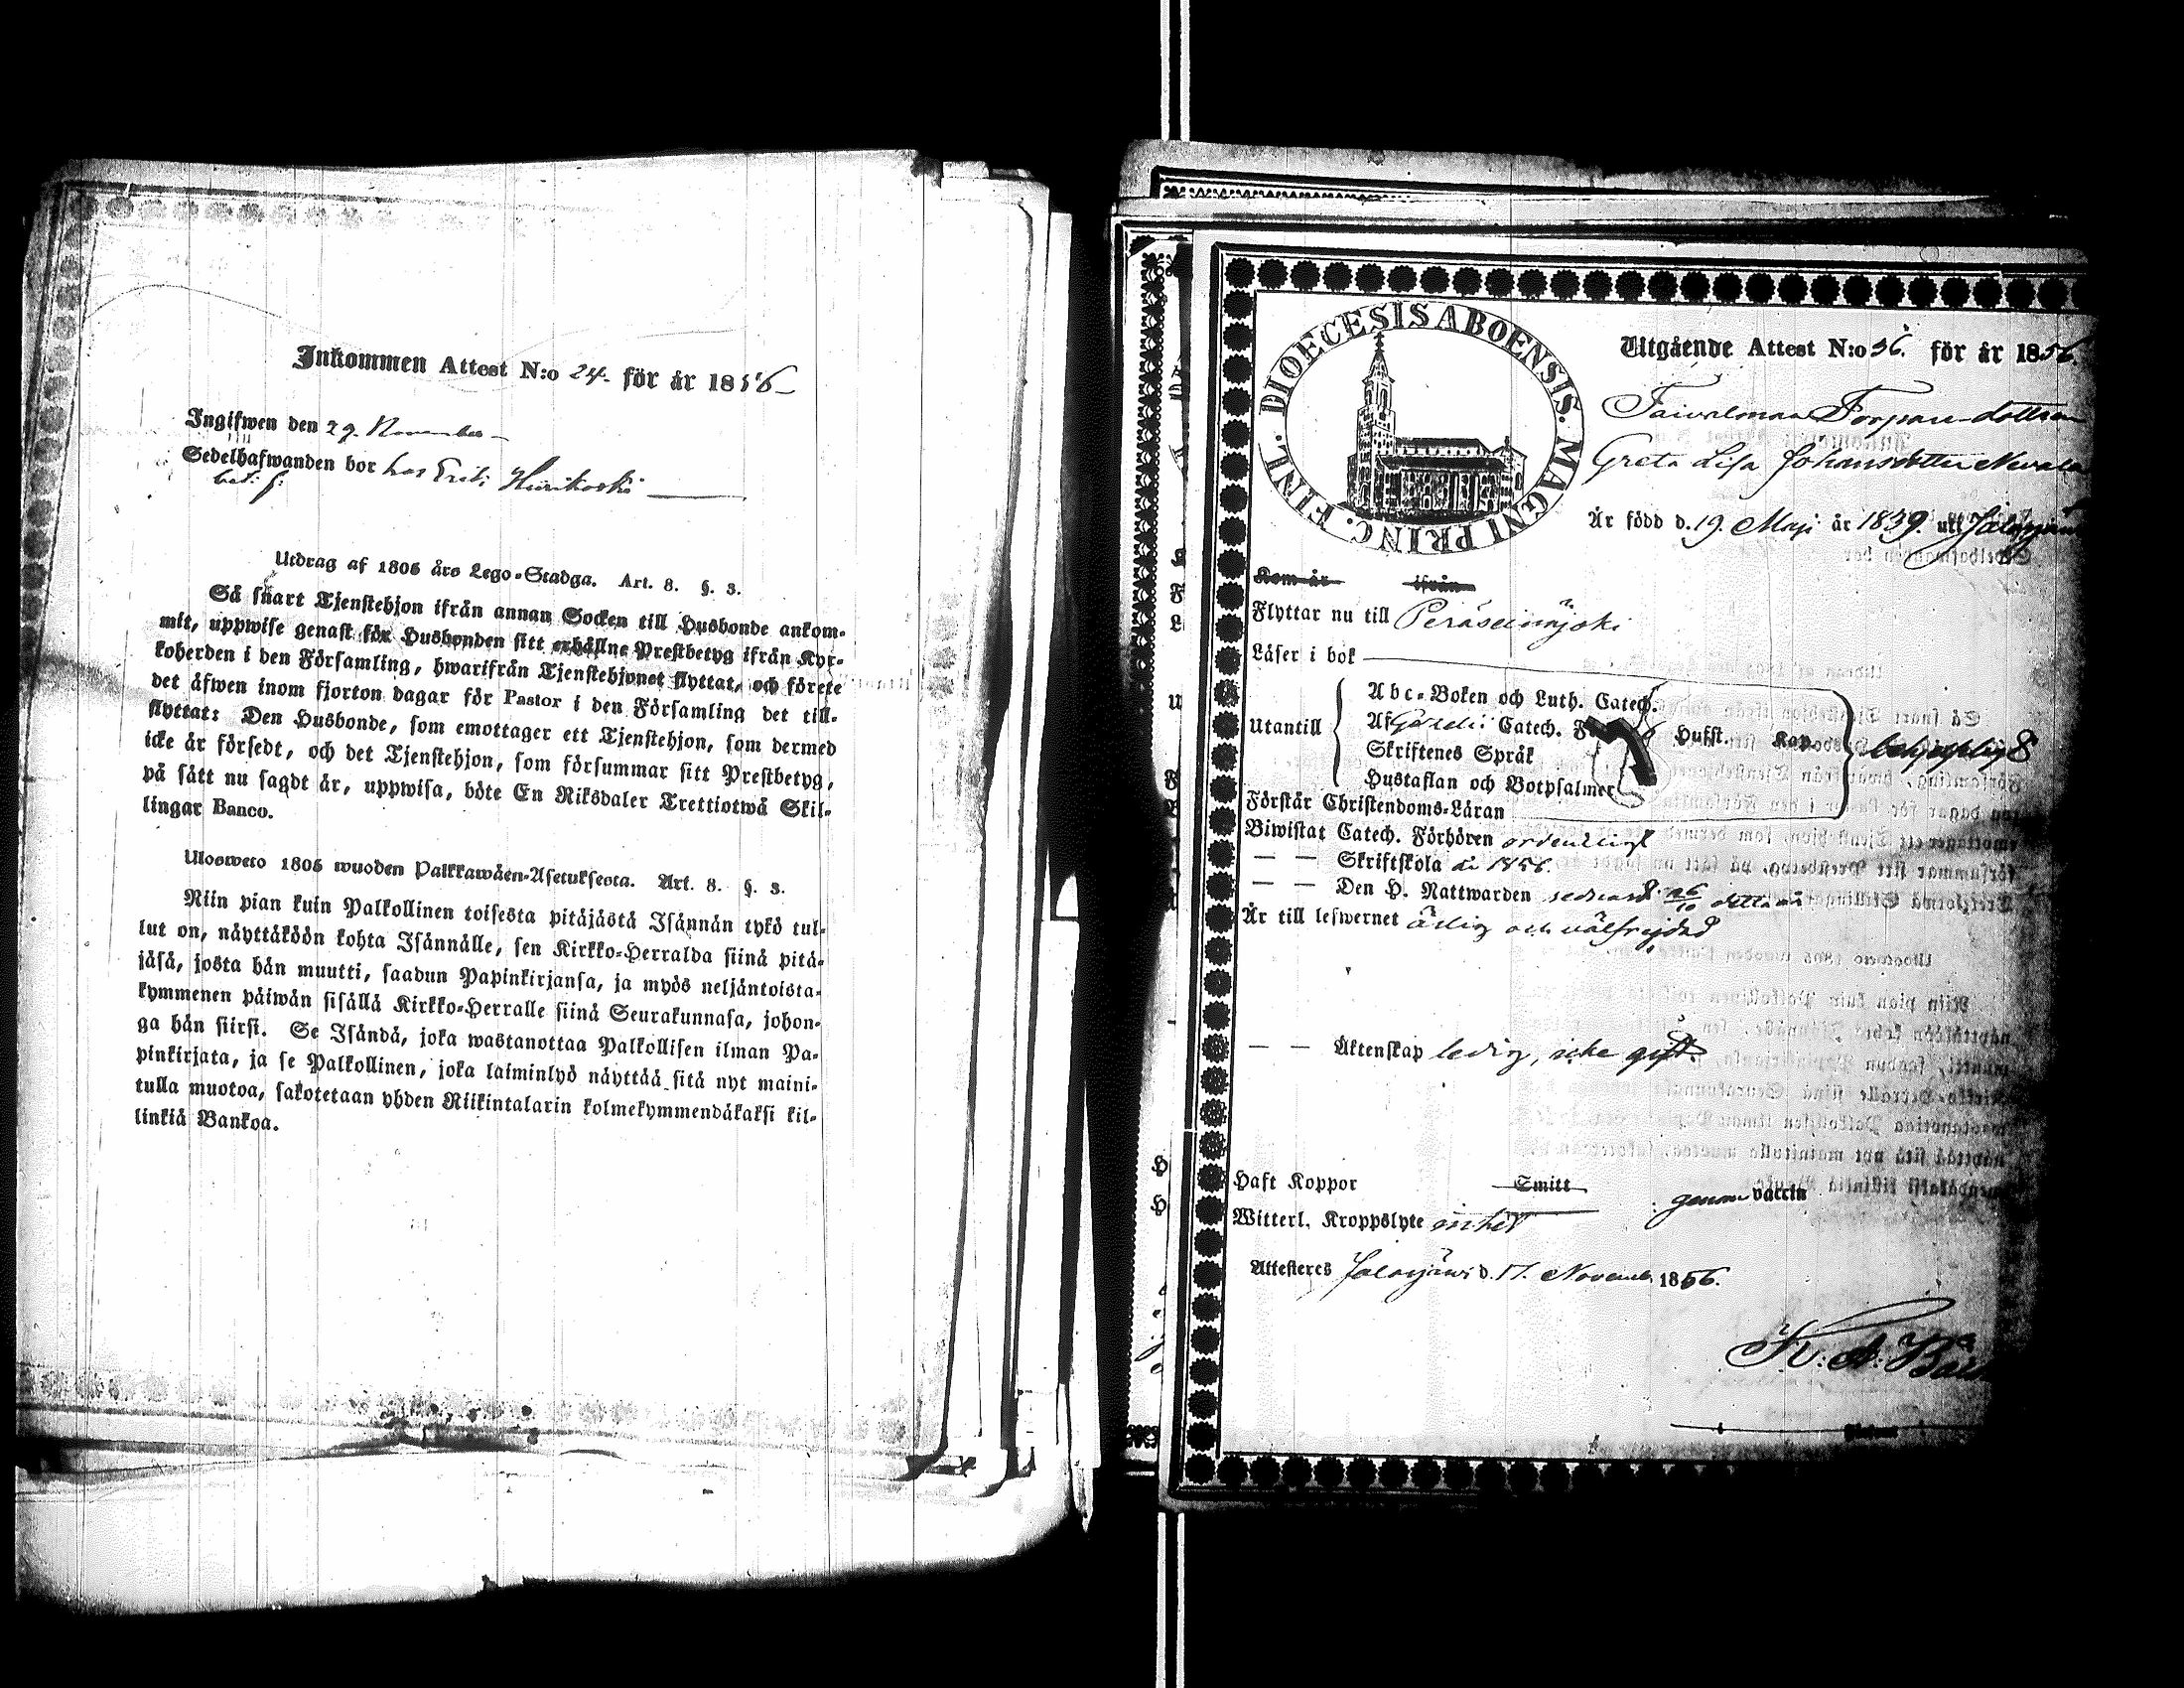 Inkommen Attest N:o 24. för år 1856
Ingifwen den 29. November
Sedelhafwanden bor hos Erik Hirvikoski
bet: f:
Utdrag af 1805 års Lego-Stadga. Art. 8. §. 3.
Så snart Tjenstehjon ifrån annan Socken till Husbonde ankom-
mit, uppwise genast för Husbonden sitt erhållne Prestbetyg ifrån Kyr-
koherden i den Församling, hwarifrån Tjenstehjonet flyttat, och förete
det äfwen inom fjorton dagar för Pastor i den Församling det till-
flyttat: Den Husbonde, som emottager ett Tjenstehjon, som dermed
icke är försedt, och det Tjenstehjon, som försummar sitt Prestbetyg,
på sätt nu sagdt är, uppwisa, böte En Riksdaler Trettiotwå Skil-
lingar Banco.
Ulosweto 1805 wuoden Palkkawäen-Asetuksesta. Art. 8. §. 3.
Niin pian kuin Palkollinen toisesta pitäjästä Isännän tykö tul-
lut on, näyttäköön kohta Isännälle, sen Kirkko-Herralda siinä pitä-
jäsä, josta hän muutti, saadun Papinkirjansa, ja myös neljäntoista-
kymmenen päiwän sisällä Kirkko-Herralle siinä Seurakunnasa, johon-
ga hän siirsi. Se Isändä, joka wastanottaa Palkollisen ilman Pa-
pinkirjata, ja se Palkollinen, joka laiminlyö näyttää sitä nyt maini-
tulla muotoa, sakotetaan yhden Riikintalarin kolmekymmendäkaksi kil-
linkiä Bankoa.
DIOECESIS ABOENSIS. MAGNI PRINC. FINL.
Utgående Attest N:o 36. för år 1856.
Taivalmaa Torpare-dottren
Greta Lisa Johansdotter Nevala
Är född d. 19. Maji år 1839. uti Jalasjärvi
Kom år ifrån
Flyttar nu till Peräseinäjoki
Läser i bok
Utantill
Abc-Boken och Luth. Catech.
Af Gezelii Catech. Hufst. Kap.
Skriftenes Språk
Hustaflan och Botpsalmer
Förstår Christendoms-Läran
Biwistat Catech. Förhören ordentligt
— — Skriftskola år 1856.
— — Den H. Nattwarden sednast 26/10 detta år
Är till lefwernet ärlig och välfrejdad
— — Äktenskap ledig, icke gift.
Haft Koppor Smitt genom vaccin
Witterl. Kroppslyte intet
Attesteres Jalasjärvi d. 17. Novemb. 1856.
K: A: